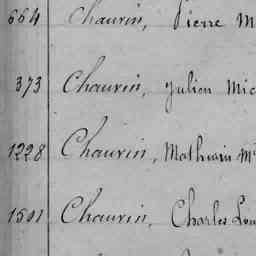 664 Chauvin, Pierre M
373 Chauvin, Julien Mic
1228 Chauvin, Mathurin M
1501 Chauvin, Charles Lou